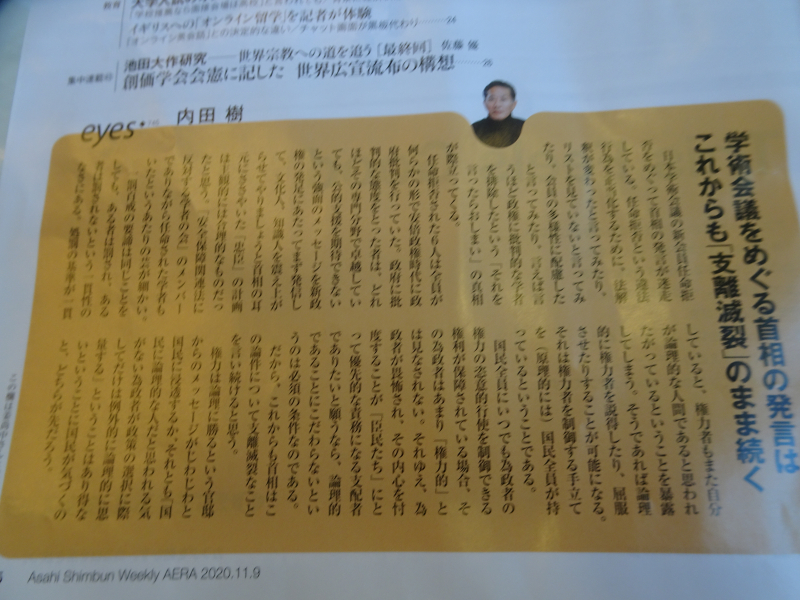 イギリスへの「オンライン留学」を記者が体験
「オンライン英会話」との決定的な違い/チャット画面が黒板代わり
24
集中連載
池田大作研究――世界宗教への道を追う[最終回] 佐藤 優
創価学会会憲に記した 世界広宣流布の構想
26
eyes:
内田 樹
学術会議をめぐる首相の発言は
これからも「支離滅裂」のまま続く
日本学術会議の新会員任命拒
否をめぐって首相の発言が迷走
している。任命拒否という違法
行為を正当化するために、法解
釈が変わったと言ってみたり、
リストを見ていないと言ってみ
たり、会員の多様性に配慮した
と言ってみたり、言えば言
うほど政権に批判的な学者
を排除したという「それを
言ったらおしまい」の真相
が際立ってくる。
任命拒否された6人は全員が
何らかの形で安倍政権時代に政
府批判を行っていた。政府に批
判的な態度をとった者は、どれ
ほどその専門分野で卓越してい
ても、公的支援を期待できない
という強面のメッセージを新政
権の発足にあたってまず発信し
て、文化人、知識人を震え上が
らせてやりましょうと首相の耳
元にささやいた「忠臣」の計画
は主観的には合理的なものだっ
たと思う。「安全保障関連法に
反対する学者の会」のメンバー
でありながら任命された学者も
いたというあたりの芸が細かい。
一罰百戒の要諦は同じことを
しても、ある者は罰され、ある
者は罰されないという一貫性の
なさにある。処罰の基準が一貫
していると、権力者もまた自分
が論理的な人間であると思われ
たがっているということを暴露
してしまう。そうであれば論理
的に権力者を説得したり、屈服
させたりすることが可能になる。
それは権力者を制御する手立て
を(原理的には)国民全員が持
っているということである。
国民全員にいつでも為政者の
権力の恣意的行使を制御できる
権利が保障されている場合、そ
の為政者はあまり「権力的」と
は見なされない。それゆえ、為
政者が畏怖され、その内心を忖
度することが「臣民たち」にと
って優先的な責務になる支配者
でありたいと願うなら、論理的
であることにこだわらないとい
うのは必須の条件なのである。
だから、これからも首相はこ
の論件について支離滅裂なこと
を言い続けると思う。
権力は論理に勝るという官邸
からのメッセージがじわじわと
国民に浸透するか、それとも「国
民に論理的な人だと思われる気
がない為政者が政策の選択に際
してだけは例外的に論理的に思
量する」ということはあり得な
いということに国民が気づくの
と、どちらが先だろう。
Asahi Shimbun Weekly AERA 2020.11.9